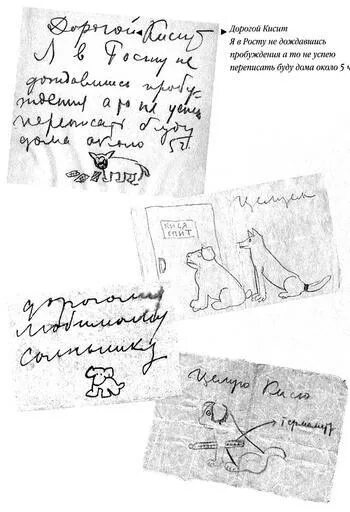 Дорогой Кисит
Я в Росту не
дождавшись пробу-
ждения а то не успею
переписать буду
дома около 5 ч.
Дорогой Кисит
Я в Росту не дождавшись
пробуждения а то не успею
переписать буду дома около 5 ч
Целую
КИСА
СПИТ
дорогому
любимому
солнышику
Целую Кисю
Термометр